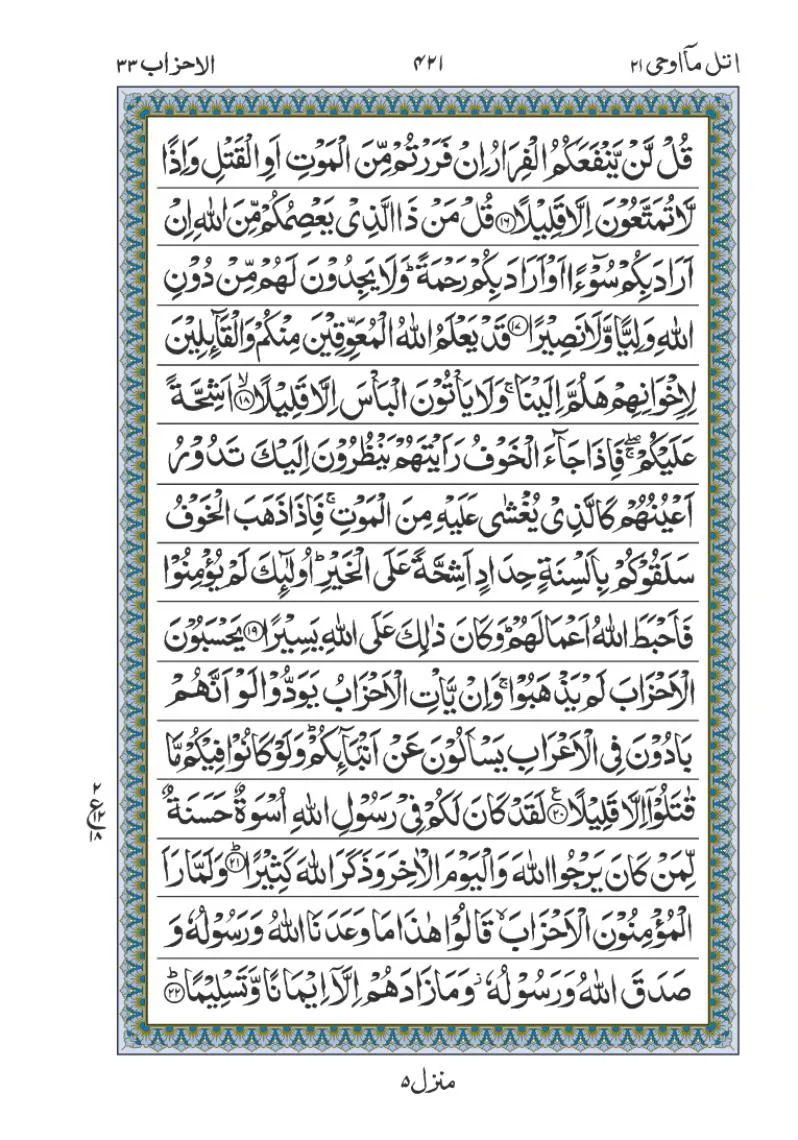 اتل مآاوحی ۲۱
۴۲۱
الاحزاب ۳۳
قُلْ لَّنْ يَّنْفَعَكُمُ الْفِرَارُ اِنْ فَرَرْتُمْ مِّنَ الْمَوْتِ اَوِ الْقَتْلِ وَاِذًا
لَّا تُمَتَّعُوْنَ اِلَّا قَلِيْلًا ۝۱۶ قُلْ مَنْ ذَا الَّذِيْ يَعْصِمُكُمْ مِّنَ اللّٰهِ اِنْ
اَرَادَ بِكُمْ سُوْٓءًا اَوْ اَرَادَ بِكُمْ رَحْمَةً ؕ وَلَا يَجِدُوْنَ لَهُمْ مِّنْ دُوْنِ
اللّٰهِ وَلِيًّا وَّلَا نَصِيْرًا ۝۱۷ قَدْ يَعْلَمُ اللّٰهُ الْمُعَوِّقِيْنَ مِنْكُمْ وَالْقَآىِٕلِيْنَ
لِاِخْوَانِهِمْ هَلُمَّ اِلَيْنَا ۚ وَلَا يَاْتُوْنَ الْبَاْسَ اِلَّا قَلِيْلًا ۝۱۸ۙ اَشِحَّةً
عَلَيْكُمْ ۖۚ فَاِذَا جَآءَ الْخَوْفُ رَاَيْتَهُمْ يَنْظُرُوْنَ اِلَيْكَ تَدُوْرُ
اَعْيُنُهُمْ كَالَّذِيْ يُغْشٰى عَلَيْهِ مِنَ الْمَوْتِ ۚ فَاِذَا ذَهَبَ الْخَوْفُ
سَلَقُوْكُمْ بِاَلْسِنَةٍ حِدَادٍ اَشِحَّةً عَلَى الْخَيْرِ ؕ اُولٰٓىِٕكَ لَمْ يُؤْمِنُوْا
فَاَحْبَطَ اللّٰهُ اَعْمَالَهُمْ ؕ وَكَانَ ذٰلِكَ عَلَى اللّٰهِ يَسِيْرًا ۝۱۹ يَحْسَبُوْنَ
الْاَحْزَابَ لَمْ يَذْهَبُوْا ۚ وَاِنْ يَّاْتِ الْاَحْزَابُ يَوَدُّوْا لَوْ اَنَّهُمْ
بَادُوْنَ فِى الْاَعْرَابِ يَسْاَلُوْنَ عَنْ اَنْۢبَآىِٕكُمْ ؕ وَلَوْ كَانُوْا فِيْكُمْ مَّا
قٰتَلُوْٓا اِلَّا قَلِيْلًا ۝۲۰ۧ لَقَدْ كَانَ لَكُمْ فِيْ رَسُوْلِ اللّٰهِ اُسْوَةٌ حَسَنَةٌ
لِّمَنْ كَانَ يَرْجُوا اللّٰهَ وَالْيَوْمَ الْاٰخِرَ وَذَكَرَ اللّٰهَ كَثِيْرًا ۝۲۱ؕ وَلَمَّا رَاَ
الْمُؤْمِنُوْنَ الْاَحْزَابَ ۙ قَالُوْا هٰذَا مَا وَعَدَنَا اللّٰهُ وَرَسُوْلُهٗ وَ
صَدَقَ اللّٰهُ وَرَسُوْلُهٗ ؗ وَمَا زَادَهُمْ اِلَّآ اِيْمَانًا وَّتَسْلِيْمًا ۝۲۲ؕ
۲
ع۱۲
۱۸
منزل ۵